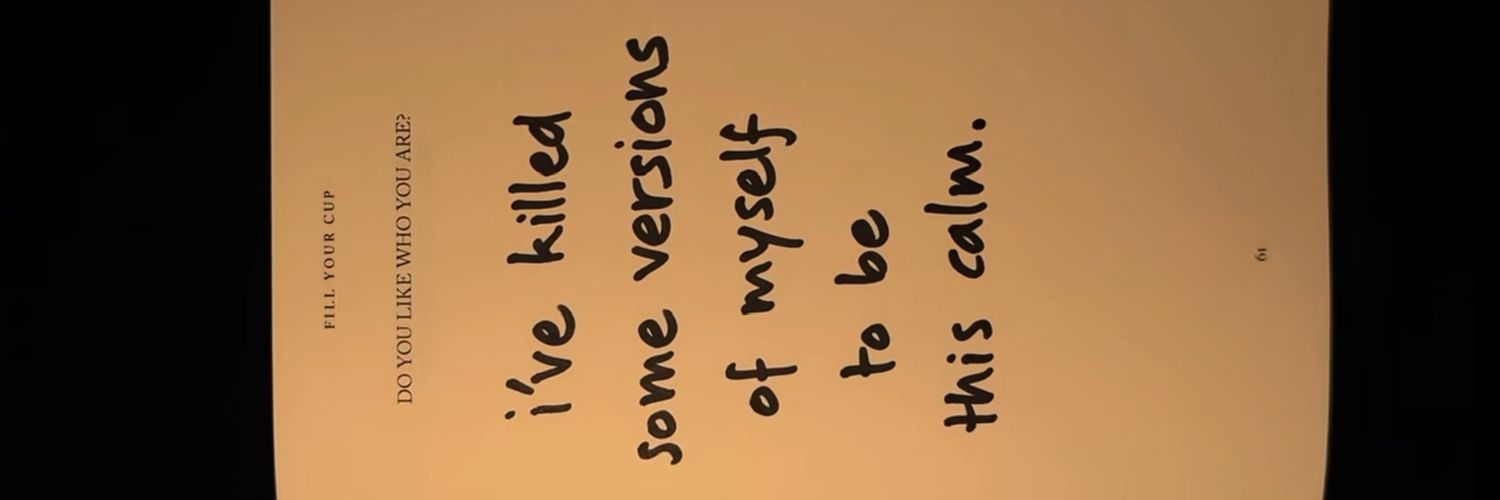 FILL YOUR CUP
DO YOU LIKE WHO YOU ARE?
i've killed
some versions
of myself
to be
this calm.
61